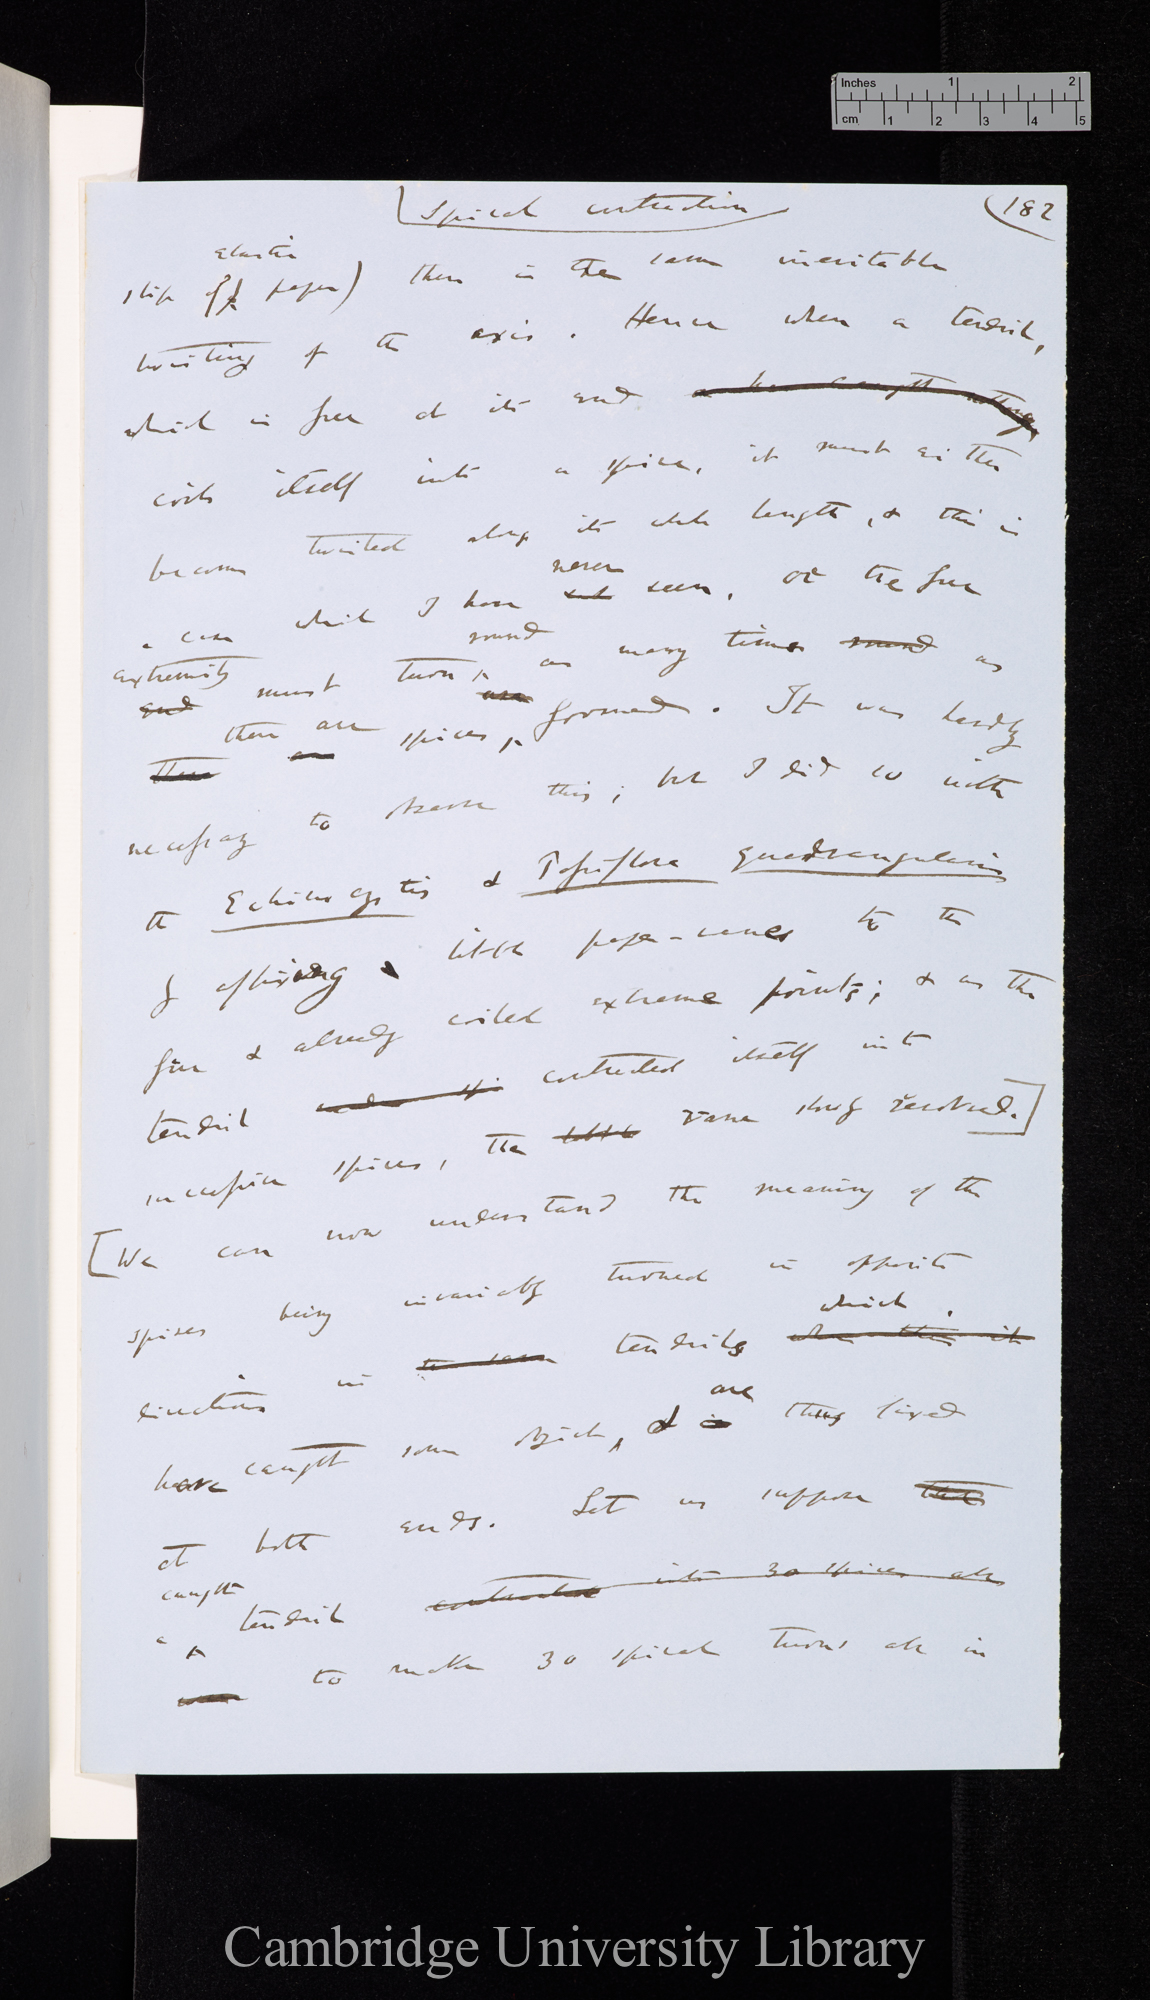 Inches 1 2
cm 1 2 3 4 5
Spiral contraction (182
elastic
slip of paper) there is the same inevitable
twisting of the axis. Hence when a tendril,
which is free at its end a has caught
coils itself into a spire, it must either
become twisted along its whole length, & this is
never
a case which I have not seen, or the free
extremity round
end must turn as many times round as
there there are are spires, are formed. It was hardly
necessary to observe this; but I did so with
the Echinocystis & Passiflora quadrangularis
by affixing little paper-vanes to the
free & already coiled extreme points; & as the
tendril contracted itself into
successive spires, the little vane slowly revolved.]
[We can now understand the meaning of the
spires being invariably turned in opposite
which
directions in the same tendrils when this it
are
have caught some object, & is thus fixed
at both ends. Let us suppose that
caught
a tendril contracted into 30 spires all
to make 30 spiral turns all in
Cambridge University Library